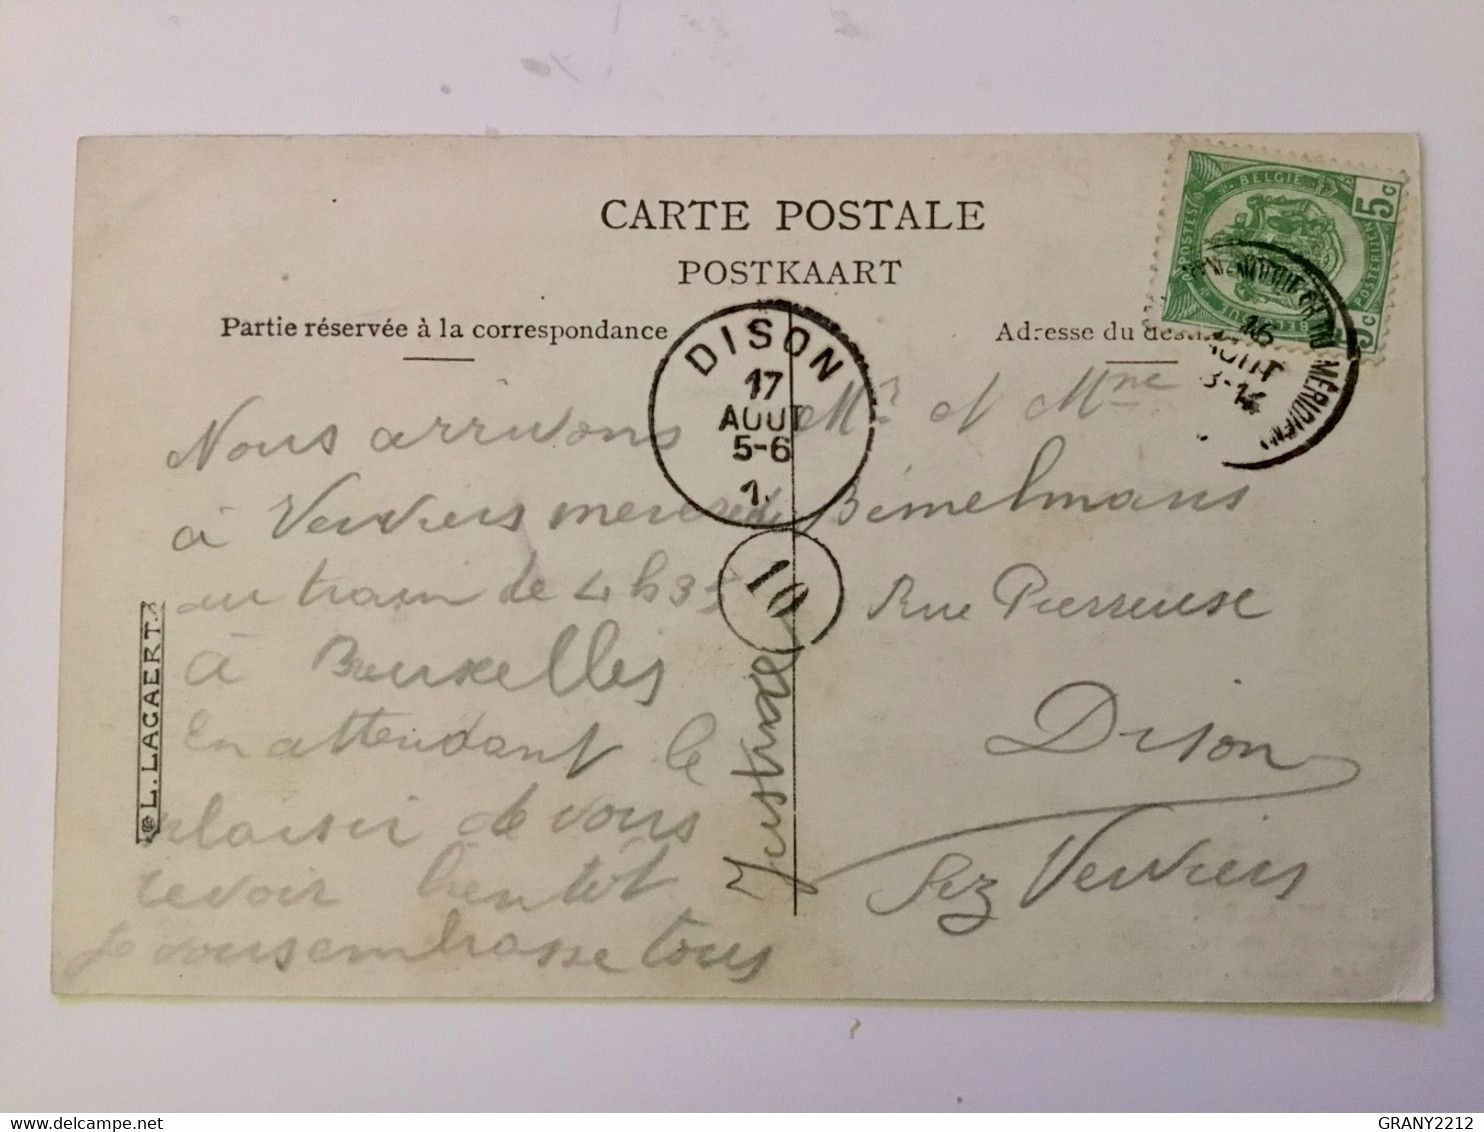 CARTE POSTALE
POSTKAART
Partie réservée à la correspondance
Adresse du
BELGIE
POSTES
POSTERIJEN
BELGIQUE
5c
5c
16
AOUT
MÉRIDIEN
DISON
17
AOUT
5-6
1.
10
L. LAGAERT.
Nous arrivons
à Verviers mercredi
au train de 4h35
à Bruxelles
En attendant le
plaisir de vous
revoir bientôt
Je vous embrasse tous
Mr et Mme
Bimelmans
Rue Pierreuse
Dison
Verviers
GRANY2212